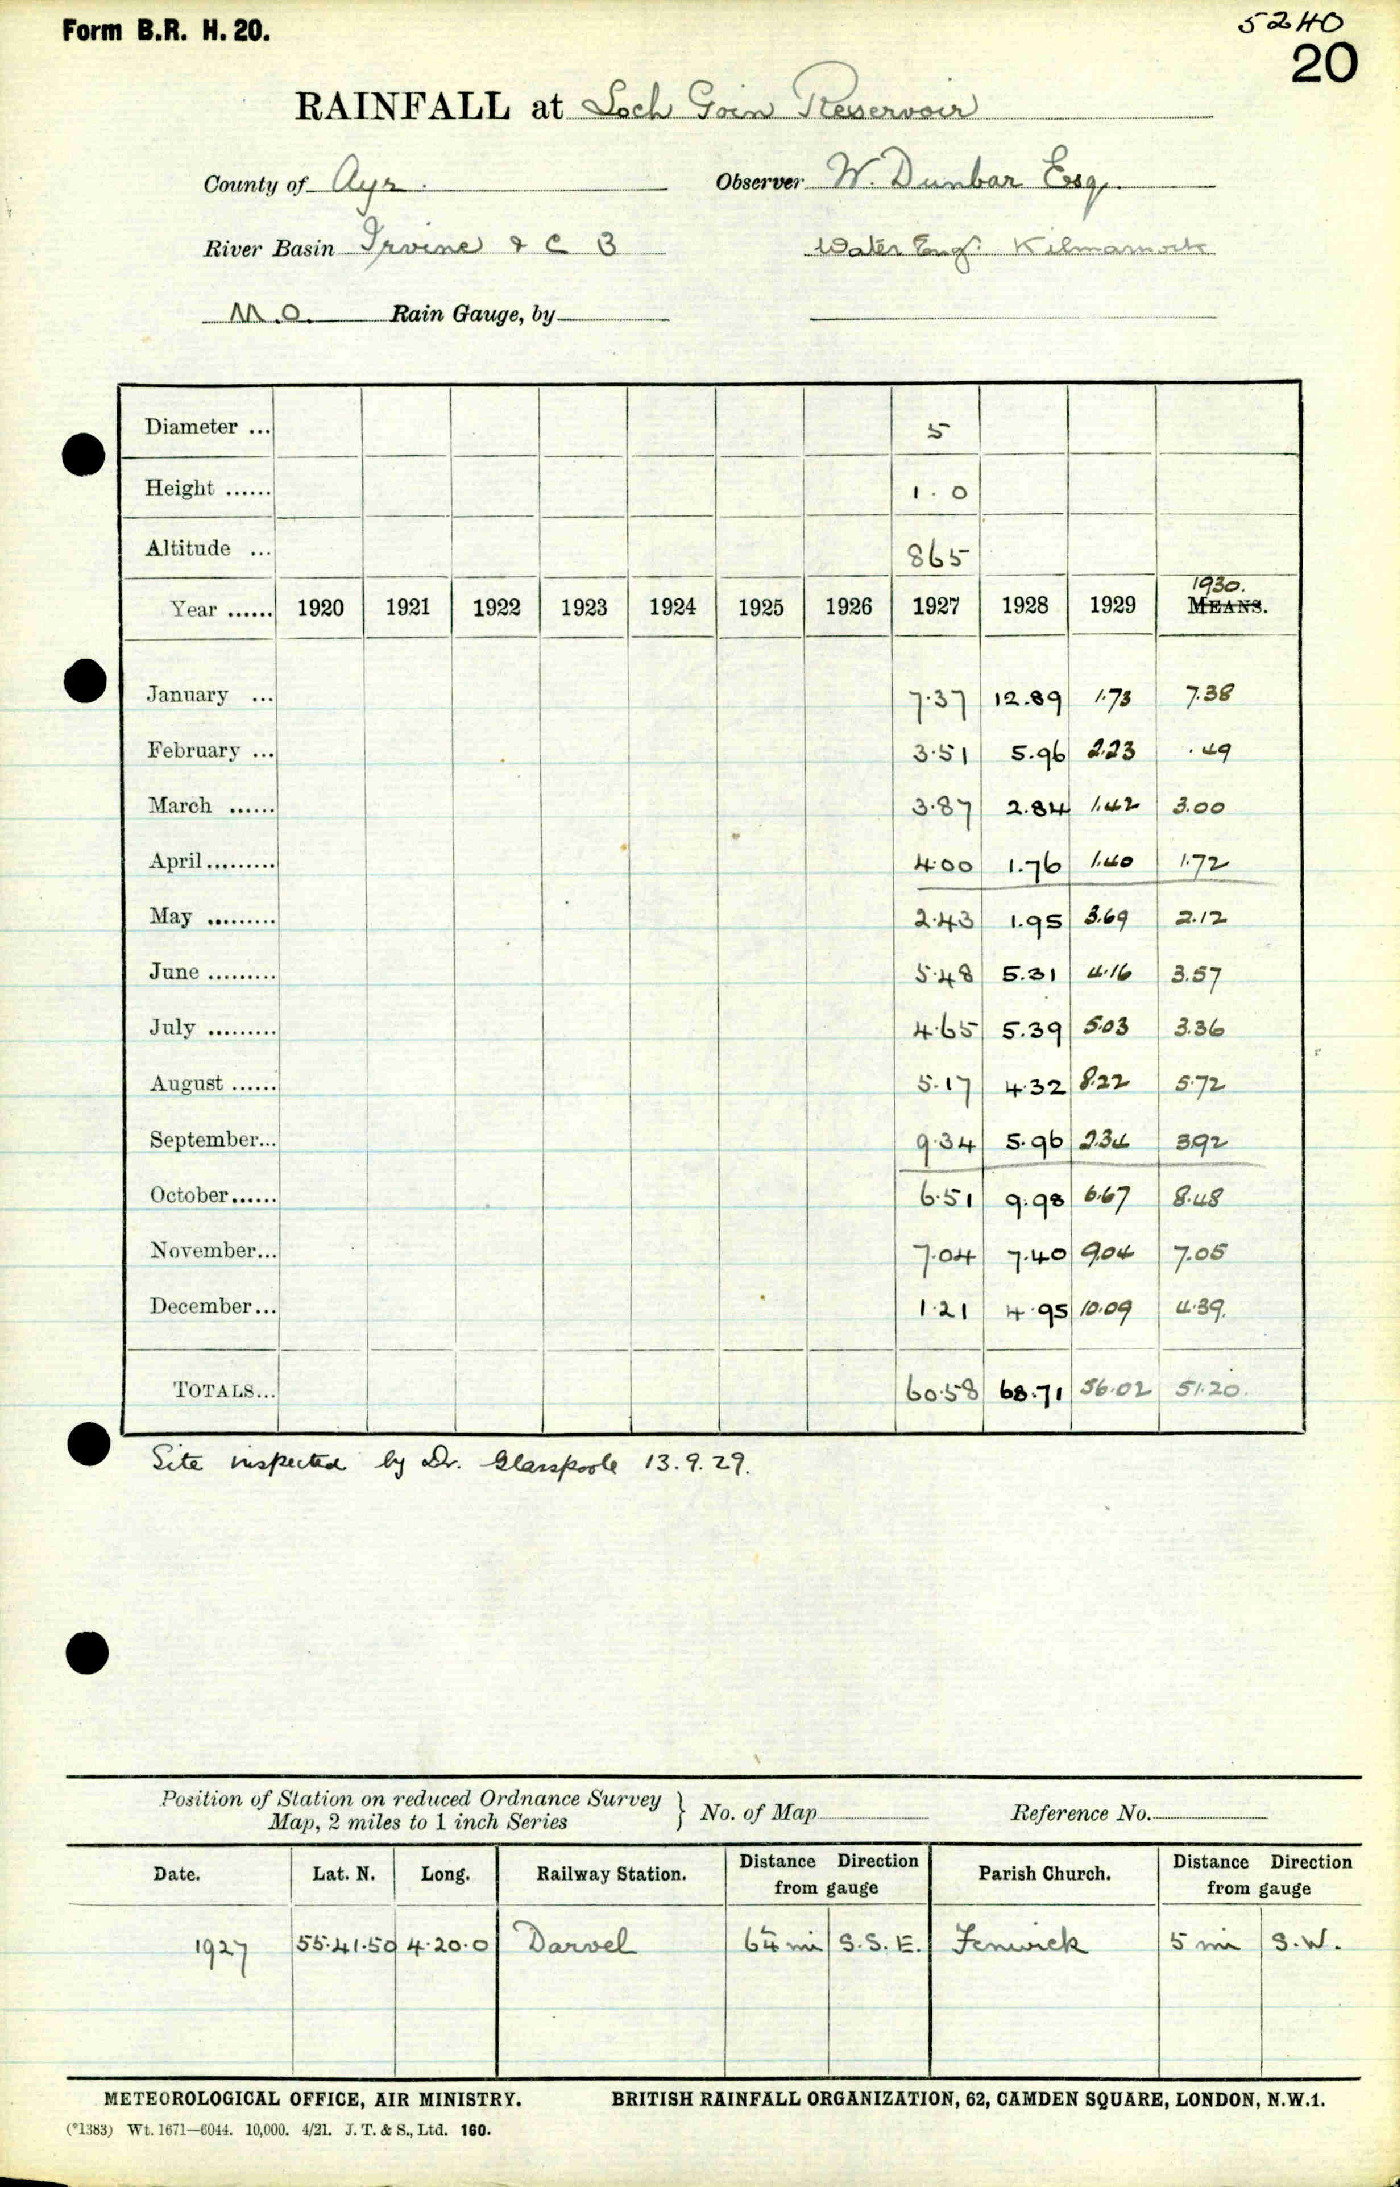 Form B.R. H. 20.
5240
20
RAINFALL at Loch Goin Reservoir
County of Ayr. Observer W. Dunbar Esq.
River Basin Irvine & C B Water Engr. Kilmarnock
M.O. Rain Gauge, by
Diameter ... 5
Height ...... 1.0
Altitude ... 865
1930.
Year ...... 1920 1921 1922 1923 1924 1925 1926 1927 1928 1929 MEANS.
January ... 7.37 12.89 1.73 7.38
February ... 3.51 5.96 2.23 .49
March ...... 3.87 2.84 1.42 3.00
April......... 4.00 1.76 1.40 1.72
May ......... 2.43 1.95 3.69 2.12
June ......... 5.48 5.31 4.16 3.57
July ......... 4.65 5.39 5.03 3.36
August ...... 5.17 4.32 8.22 5.72
September... 9.34 5.96 2.34 3.92
October...... 6.51 9.98 6.67 8.48
November... 7.04 7.40 9.04 7.05
December... 1.21 4.95 10.09 4.39.
TOTALS... 60.58 68.71 56.02 51.20.
Site inspected by Dr. Glasspoole 13.9.29.
Position of Station on reduced Ordnance Survey
Map, 2 miles to 1 inch Series } No. of Map Reference No.
Date. Lat. N. Long. Railway Station. Distance Direction from gauge Parish Church. Distance Direction from gauge
1927 55.41.50 4.20.0 Darvel mi S.S.E. Fenwick 5 mi S.W.
METEOROLOGICAL OFFICE, AIR MINISTRY. BRITISH RAINFALL ORGANIZATION, 62, CAMDEN SQUARE, LONDON, N.W.1.
(*1383) Wt. 1671—6044. 10,000. 4/21. J. T. & S., Ltd. 160.